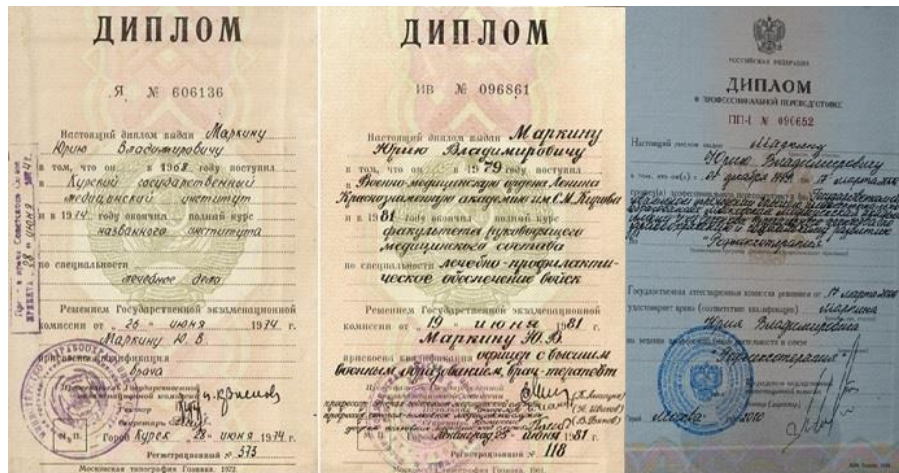 ДИПЛОМ
Я № 606136
Настоящий диплом выдан Маркину
Юрию Владимировичу
в том, что он в 1968 году поступил
в Курский государственный
медицинский институт
и в 1974 году окончил полный курс
названного института
по специальности
лечебное дело
Решением Государственной экзаменационной
комиссии от 26 " июня 1974 г.
Маркину Ю. В.
присвоена квалификация
врача
Председатель Государственной
экзаменационной комиссии
Ректор
Секретарь
М. П.
Город Курск 28 июня 1974 г.
Регистрационный № 373
Московская типография Гознака. 1972
ДИПЛОМ
ИВ № 096861
Настоящий диплом выдан Маркину
Юрию Владимировичу
в том, что он в 1979 году поступил
в Военно-медицинскую ордена Ленина
Краснознаменную академию им С.М. Кирова
и в 1981 году окончил полный курс
факультета руководящего
медицинского состава
по специальности лечебно-профилакти-
ческое обеспечение войск
Решением Государственной экзаменационной
комиссии от 19 июня 1981 г.
Маркину Ю.В.
присвоена квалификация офицер с высшим
военным образованием, врач-терапевт
Ленинград 25 июня 1981 г.
Регистрационный № 118
Московская типография Гознака. 1961
РОССИЙСКАЯ ФЕДЕРАЦИЯ
ДИПЛОМ
О ПРОФЕССИОНАЛЬНОЙ ПЕРЕПОДГОТОВКЕ
ПП-I № 090652
Настоящий диплом выдан Маркину
Юрию Владимировичу
в том, что он(а) с 01 декабря
17 марта
Государственная аттестационная комиссия решением от 17 марта
удостоверяет право (соответствие квалификации) Маркина
Юрия Владимировича
на ведение профессиональной деятельности в сфере
Город Москва 2010